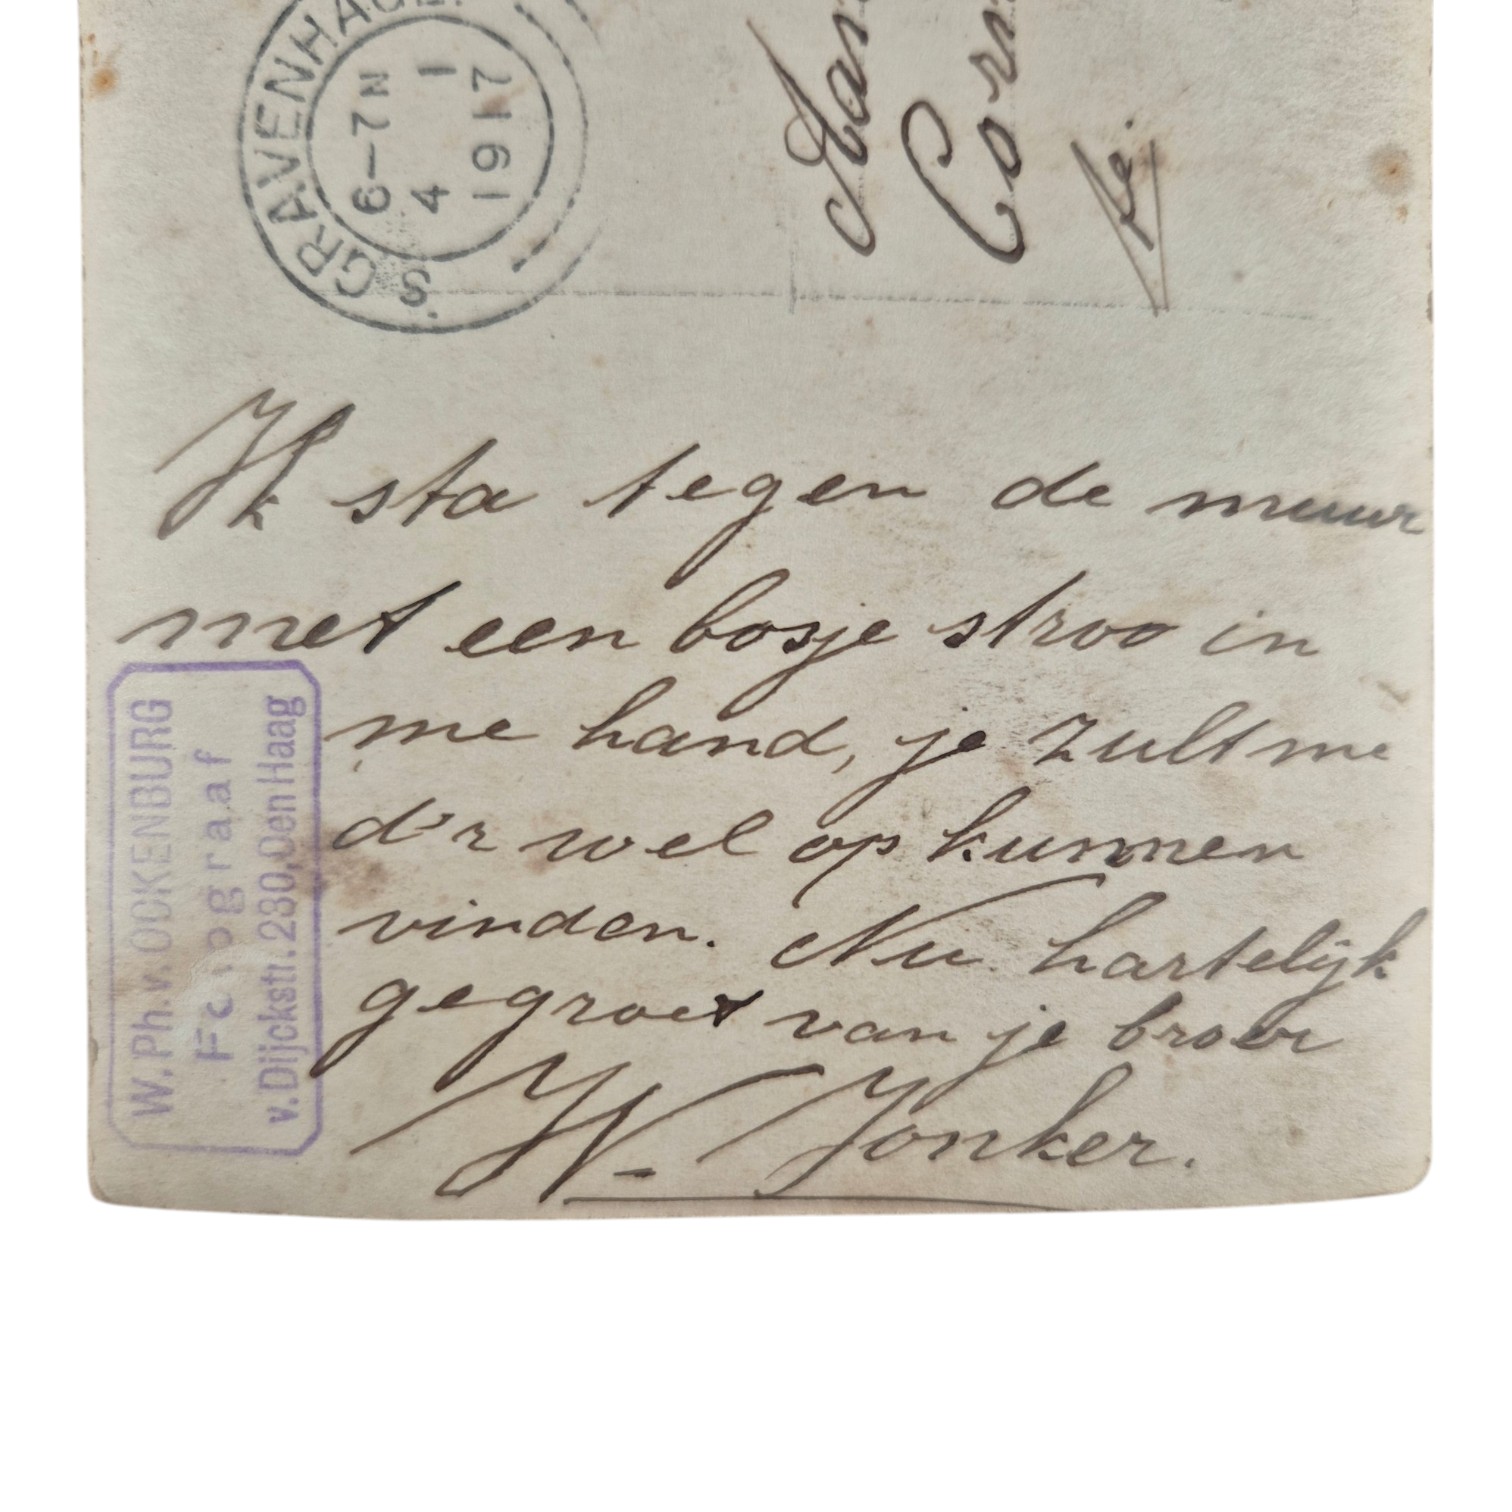 'S GRAVENHAGE.
6-7N
4 1
1917
Aan
Corn
te.
Ik sta tegen de muur
met een bosje stroo in
me hand, je zult me
d'r wel op kunnen
vinden. Nu hartelijk
gegroet van je broer
W. Jonker.
W. Ph. v. OCKENBURG
Fotograaf
v. Dijckstr. 230, Den Haag